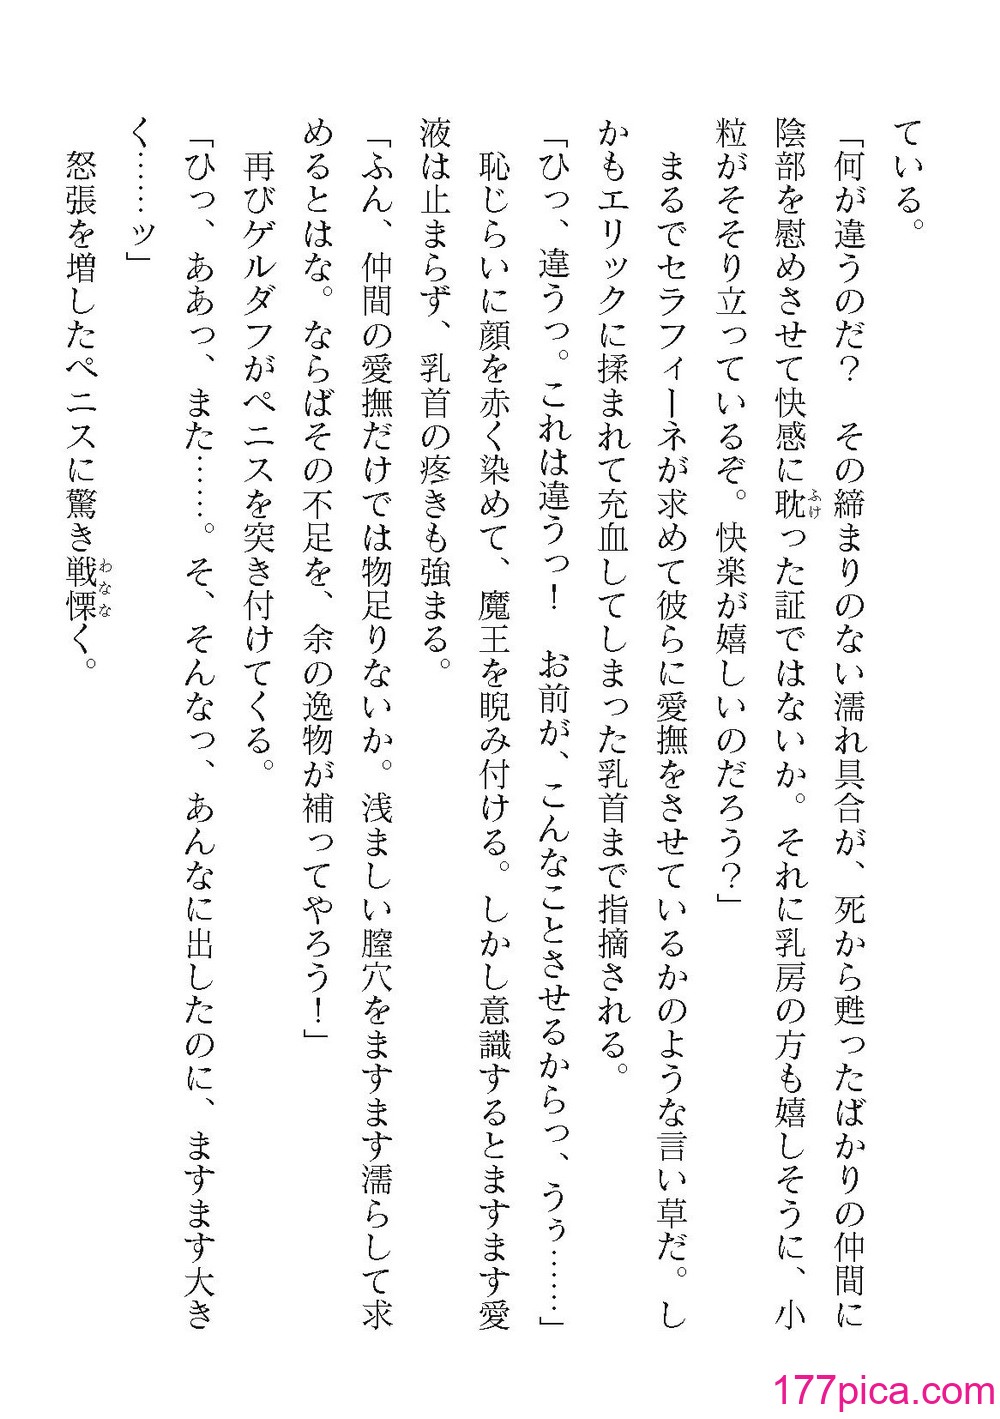 ている。
「何が違うのだ？　その締まりのない濡れ具合が、死から甦ったばかりの仲間に
ふけ
陰部を慰めさせて快感に耽った証ではないか。それに乳房の方も嬉しそうに、小
粒がそそり立っているぞ。快楽が嬉しいのだろう？」
　まるでセラフィーネが求めて彼らに愛撫をさせているかのような言い草だ。し
かもエリックに揉まれて充血してしまった乳首まで指摘される。
「ひっ、違うっ。これは違うっ！　お前が、こんなことさせるからっ、うぅ……」
　恥じらいに顔を赤く染めて、魔王を睨み付ける。しかし意識するとますます愛
液は止まらず、乳首の疼きも強まる。
「ふん、仲間の愛撫だけでは物足りないか。浅ましい膣穴をますます濡らして求
めるとはな。ならばその不足を、余の逸物が補ってやろう！」
　再びゲルダフがペニスを突き付けてくる。
「ひっ、ああっ、また……。そ、そんなっ、あんなに出したのに、ますます大き
く……ッ」
わなな
　怒張を増したペニスに驚き戦慄く。
177pica.com